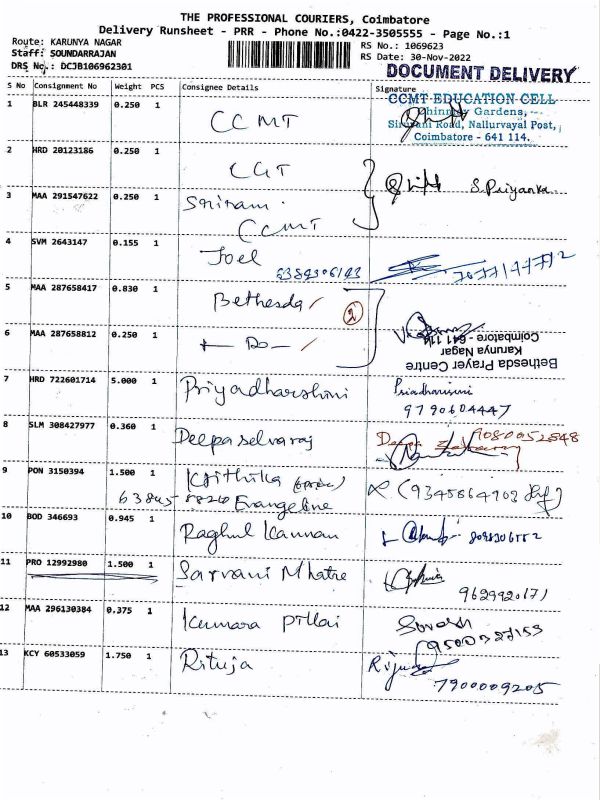 THE PROFESSIONAL COURIERS, Coimbatore
Delivery Runsheet - PRR - Phone No.:0422-3505555 - Page No.:1
Route: KARUNYA NAGAR
Staff: SOUNDARRAJAN
DRS No.: DCJB106962301
RS No.: 1069623
RS Date: 30-Nov-2022
DOCUMENT DELIVERY
S No Consignment No Weight PCS Consignee Details Signature
CCMT EDUCATION CELL
Chinmay Gardens,
Siruvani Road, Nallurvayal Post,
Coimbatore - 641 114.
1 BLR 245448339 0.250 1 CCMT
2 HRD 20123186 0.250 1
S.Priyanka
3 MAA 291547622 0.250 1 Sriram.
CCMT
4 SVM 2643147 0.155 1 Joel
6384306143
5 MAA 287658417 0.830 1 Bethesda 2
6 MAA 287658812 0.250 1 - Do -
Bethesda Prayer Centre
Karunya Nagar
Coimbatore - 641 114
7 HRD 722601714 5.000 1 Priyadharshini
9790604447
8 SLM 308427977 0.360 1 Deepa selvaraj 9080052848
9 PON 3150394 1.500 1 Krithika
Evangeline
10 BOD 346693 0.945 1 Raghul Kannan
11 PRO 12992980 1.500 1 Sarvani Mhatre
9629920171
12 MAA 296130384 0.375 1 Kumara Pillai
13 KCY 60533059 1.750 1 Rituja
7900009205